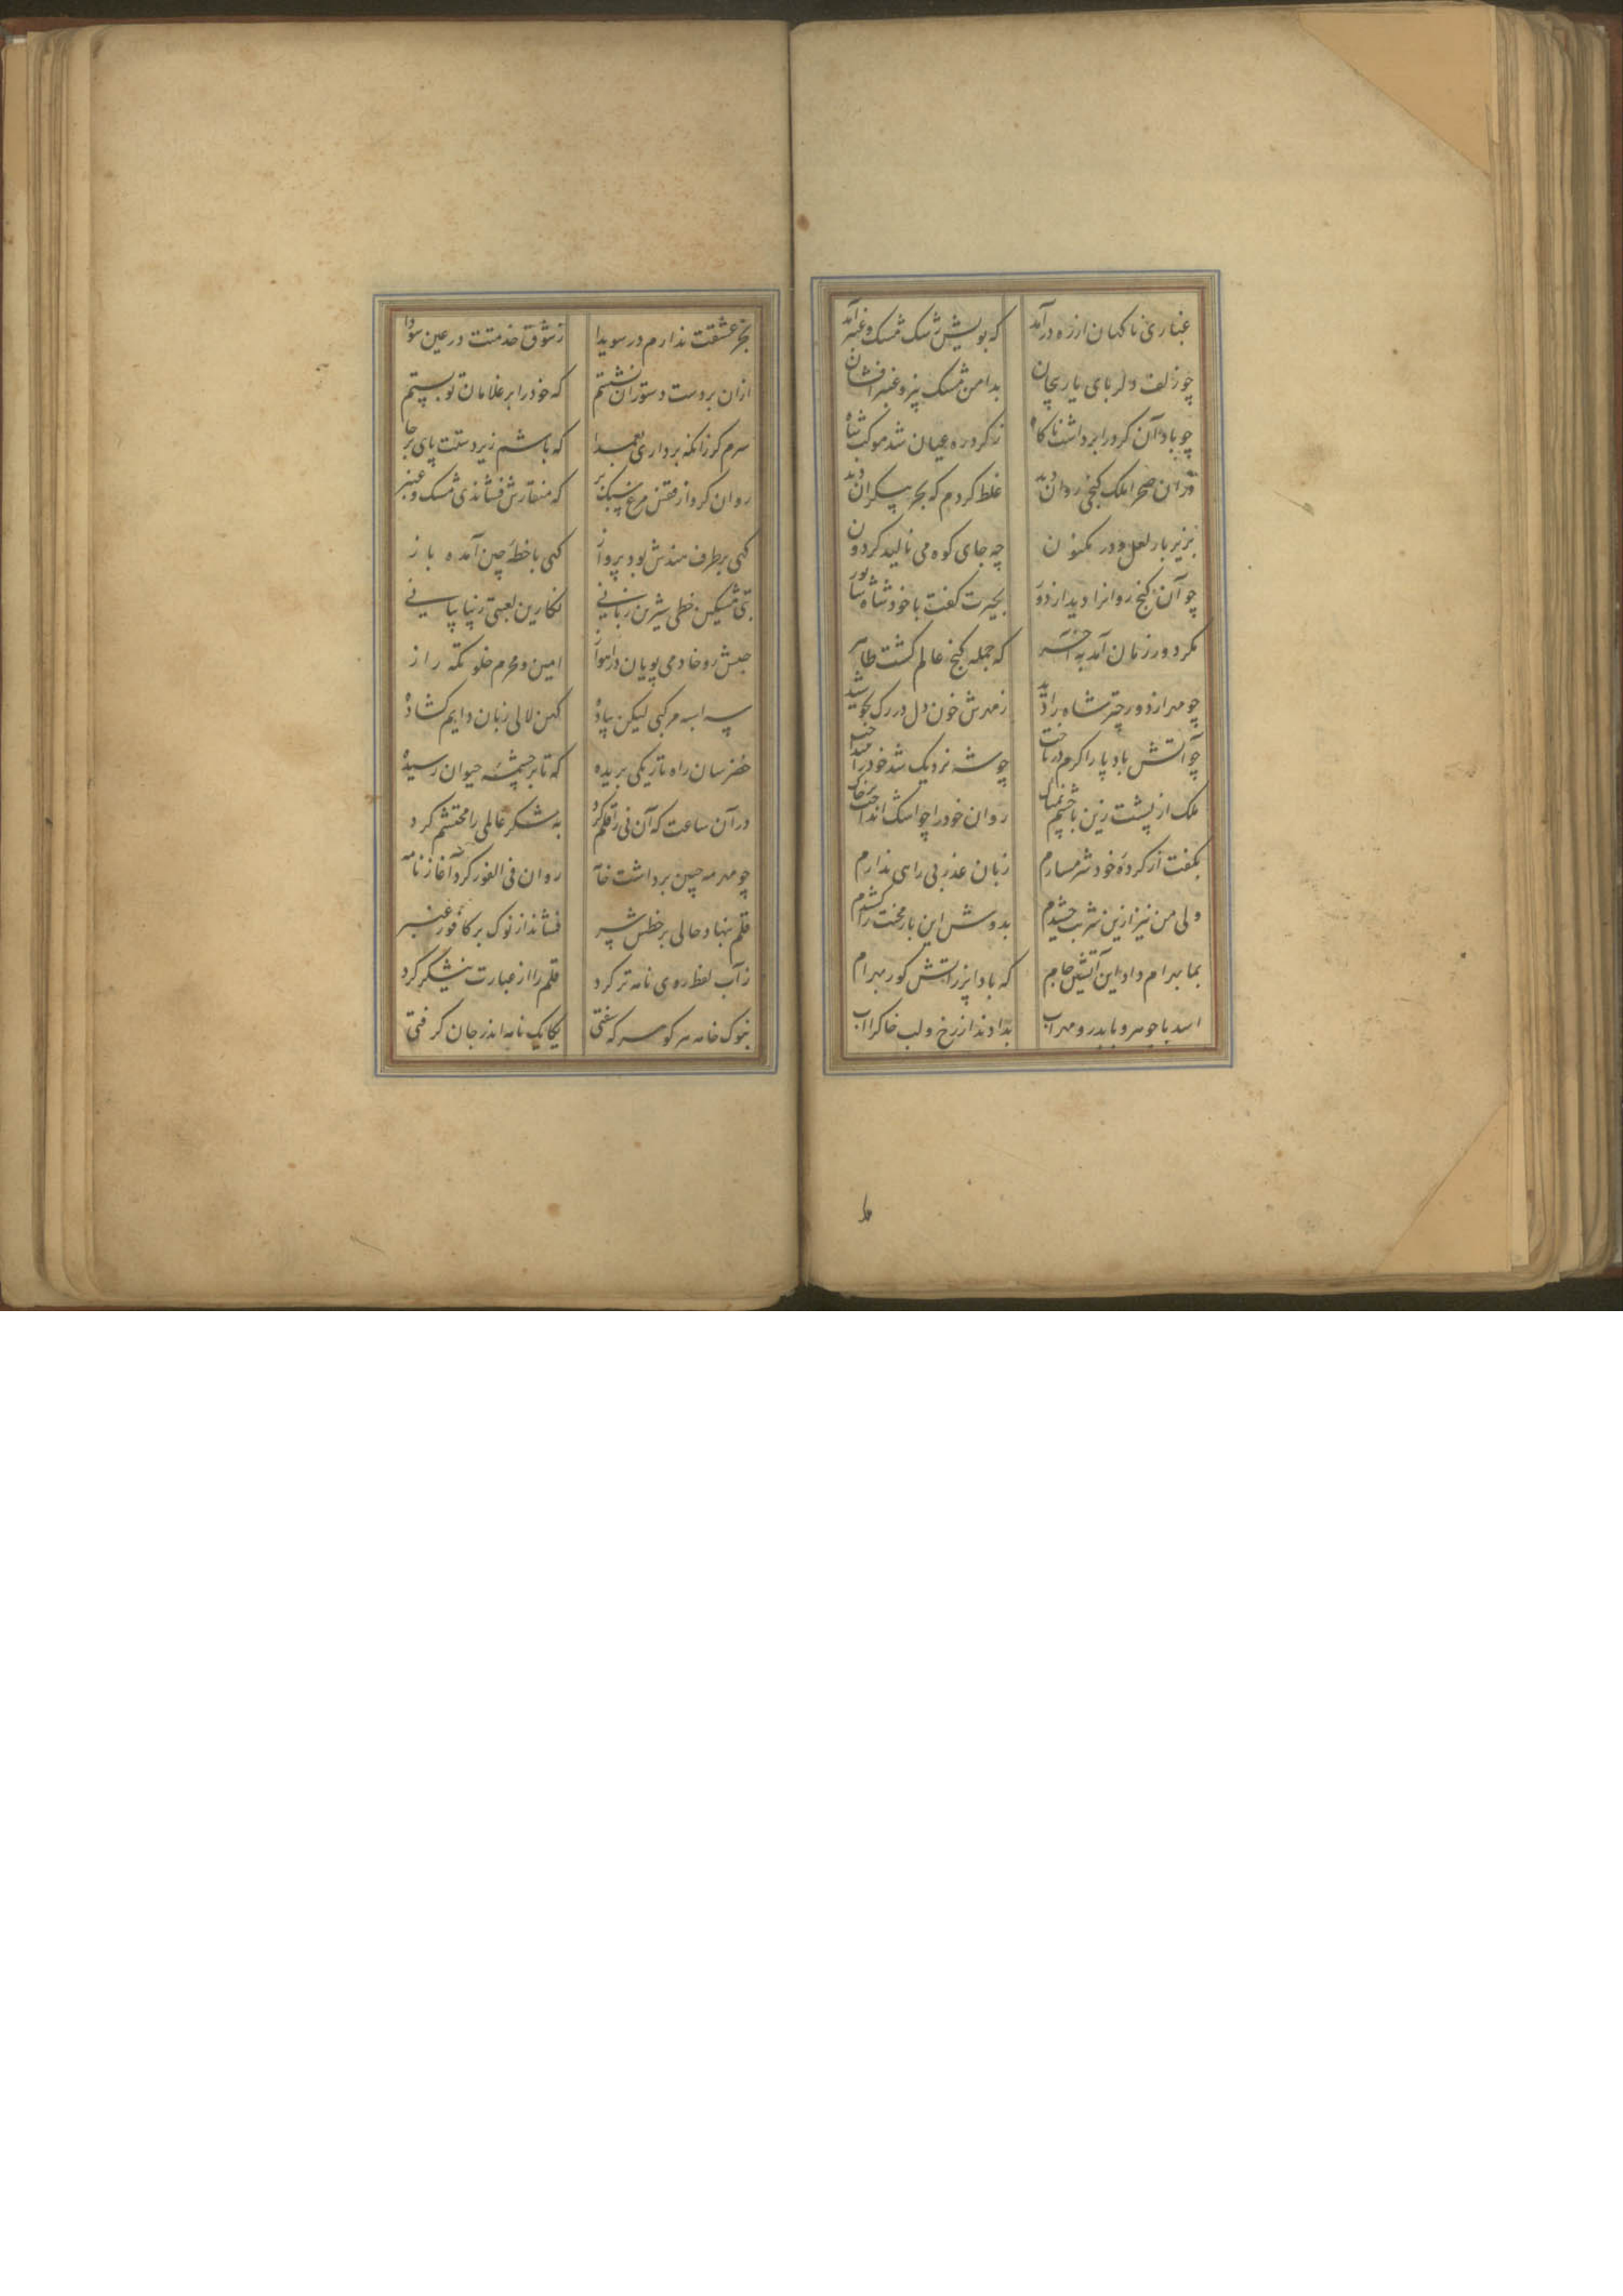 غباری ناکهان از ره درآمد که بویش رشک مشک و عنبر آمد
چو زلف دلربای یار پیچان بدامن مشک بیز و عنبر افشان
چو باد آن کرد را برداشت ناکاه ز کرد ره عیان شد موکب شاه
در آن صحرا ملک کنجی روان دید غلط کردم که بحر بیکران دید
بزیر بار لعل و در مکنون چه جای کوه می نالید کردون
چو آن کنج روانرا دید از دور بحیرت کفت با خود شاه شابور
مکر دور زمان آمد به آخر که جمله کنج عالم کشت ظاهر
چو مهر از دور چتر شاه را دید ز مهرش خون دل در رک بجوشید
چو آتش باد پا را کرم در تاخت چو شه نزدیک شد خود را انداخت
ملک از پشت زین با چشم نمناک روان خود را چو اشک انداخت بر خاک
بکفت از کرده خود شرمسارم زبان عذر بی راهی ندارم
ولی من نیز ازین شربت چشیدم بدوش این بار محنت را کشیدم
بما بهرام داد این آتشین جام که بادا پر ز آتش کور بهرام
اسد با جوهر و با بدر و مهراب بدادند از رخ و لب خاک را آب
بجز عشقت ندارم در سویدا ز شوق خدمتت در عین سودا
از آن بر دست دستوران نشستم که خود را بر غلامان تو بستم
سرم کر زانکه برداری بعمدا که باشم زیر دستت پای بر جا
روان کرد از ققنس مرغ سبک پر که منقارش فشاندی مشک و عنبر
کهی بر طرف هندش بود پرواز کهی با خطه چین آمده باز
بتی مشکین خطی شیرین زبانی نکارین لعبتی زیبا بیانی
حبش رو خادمی پویان در اهواز امین و محرم خلوتکه راز
سیه اسبه مرکبی لیکن پیاده کهن لالی زبان دایم کشاده
خضرسان راه تاریکی بریده که تا بر چشمه حیوان رسیده
در آن ساعت که آن نی را قلم کرد به شکر عالمی را محتشم کرد
چو مهر مه چین برداشت خامه روان فی الفور کرد آغاز نامه
قلم بنهاد حالی بر خطش سر فشاند از نوک بر کافور عنبر
ز آب لفظ روی نامه تر کرد قلم را از عبارت نیشکر کرد
بنوک خامه هر کوهر که سفتی یکایک نامه اندر جان کرفتی